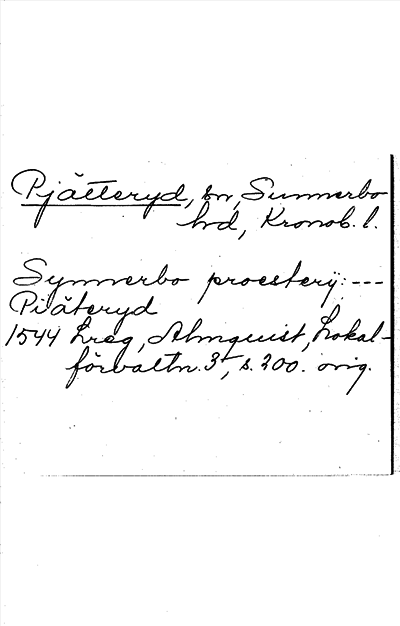 Pjätteryd, sn, Sunnerbo
hd, Kronob. l.
Synnerbo proesterij: ---
Piäteryd
1544 Lreg, Almquist, Lokal-
förvaltn. 3, s. 200. orig.